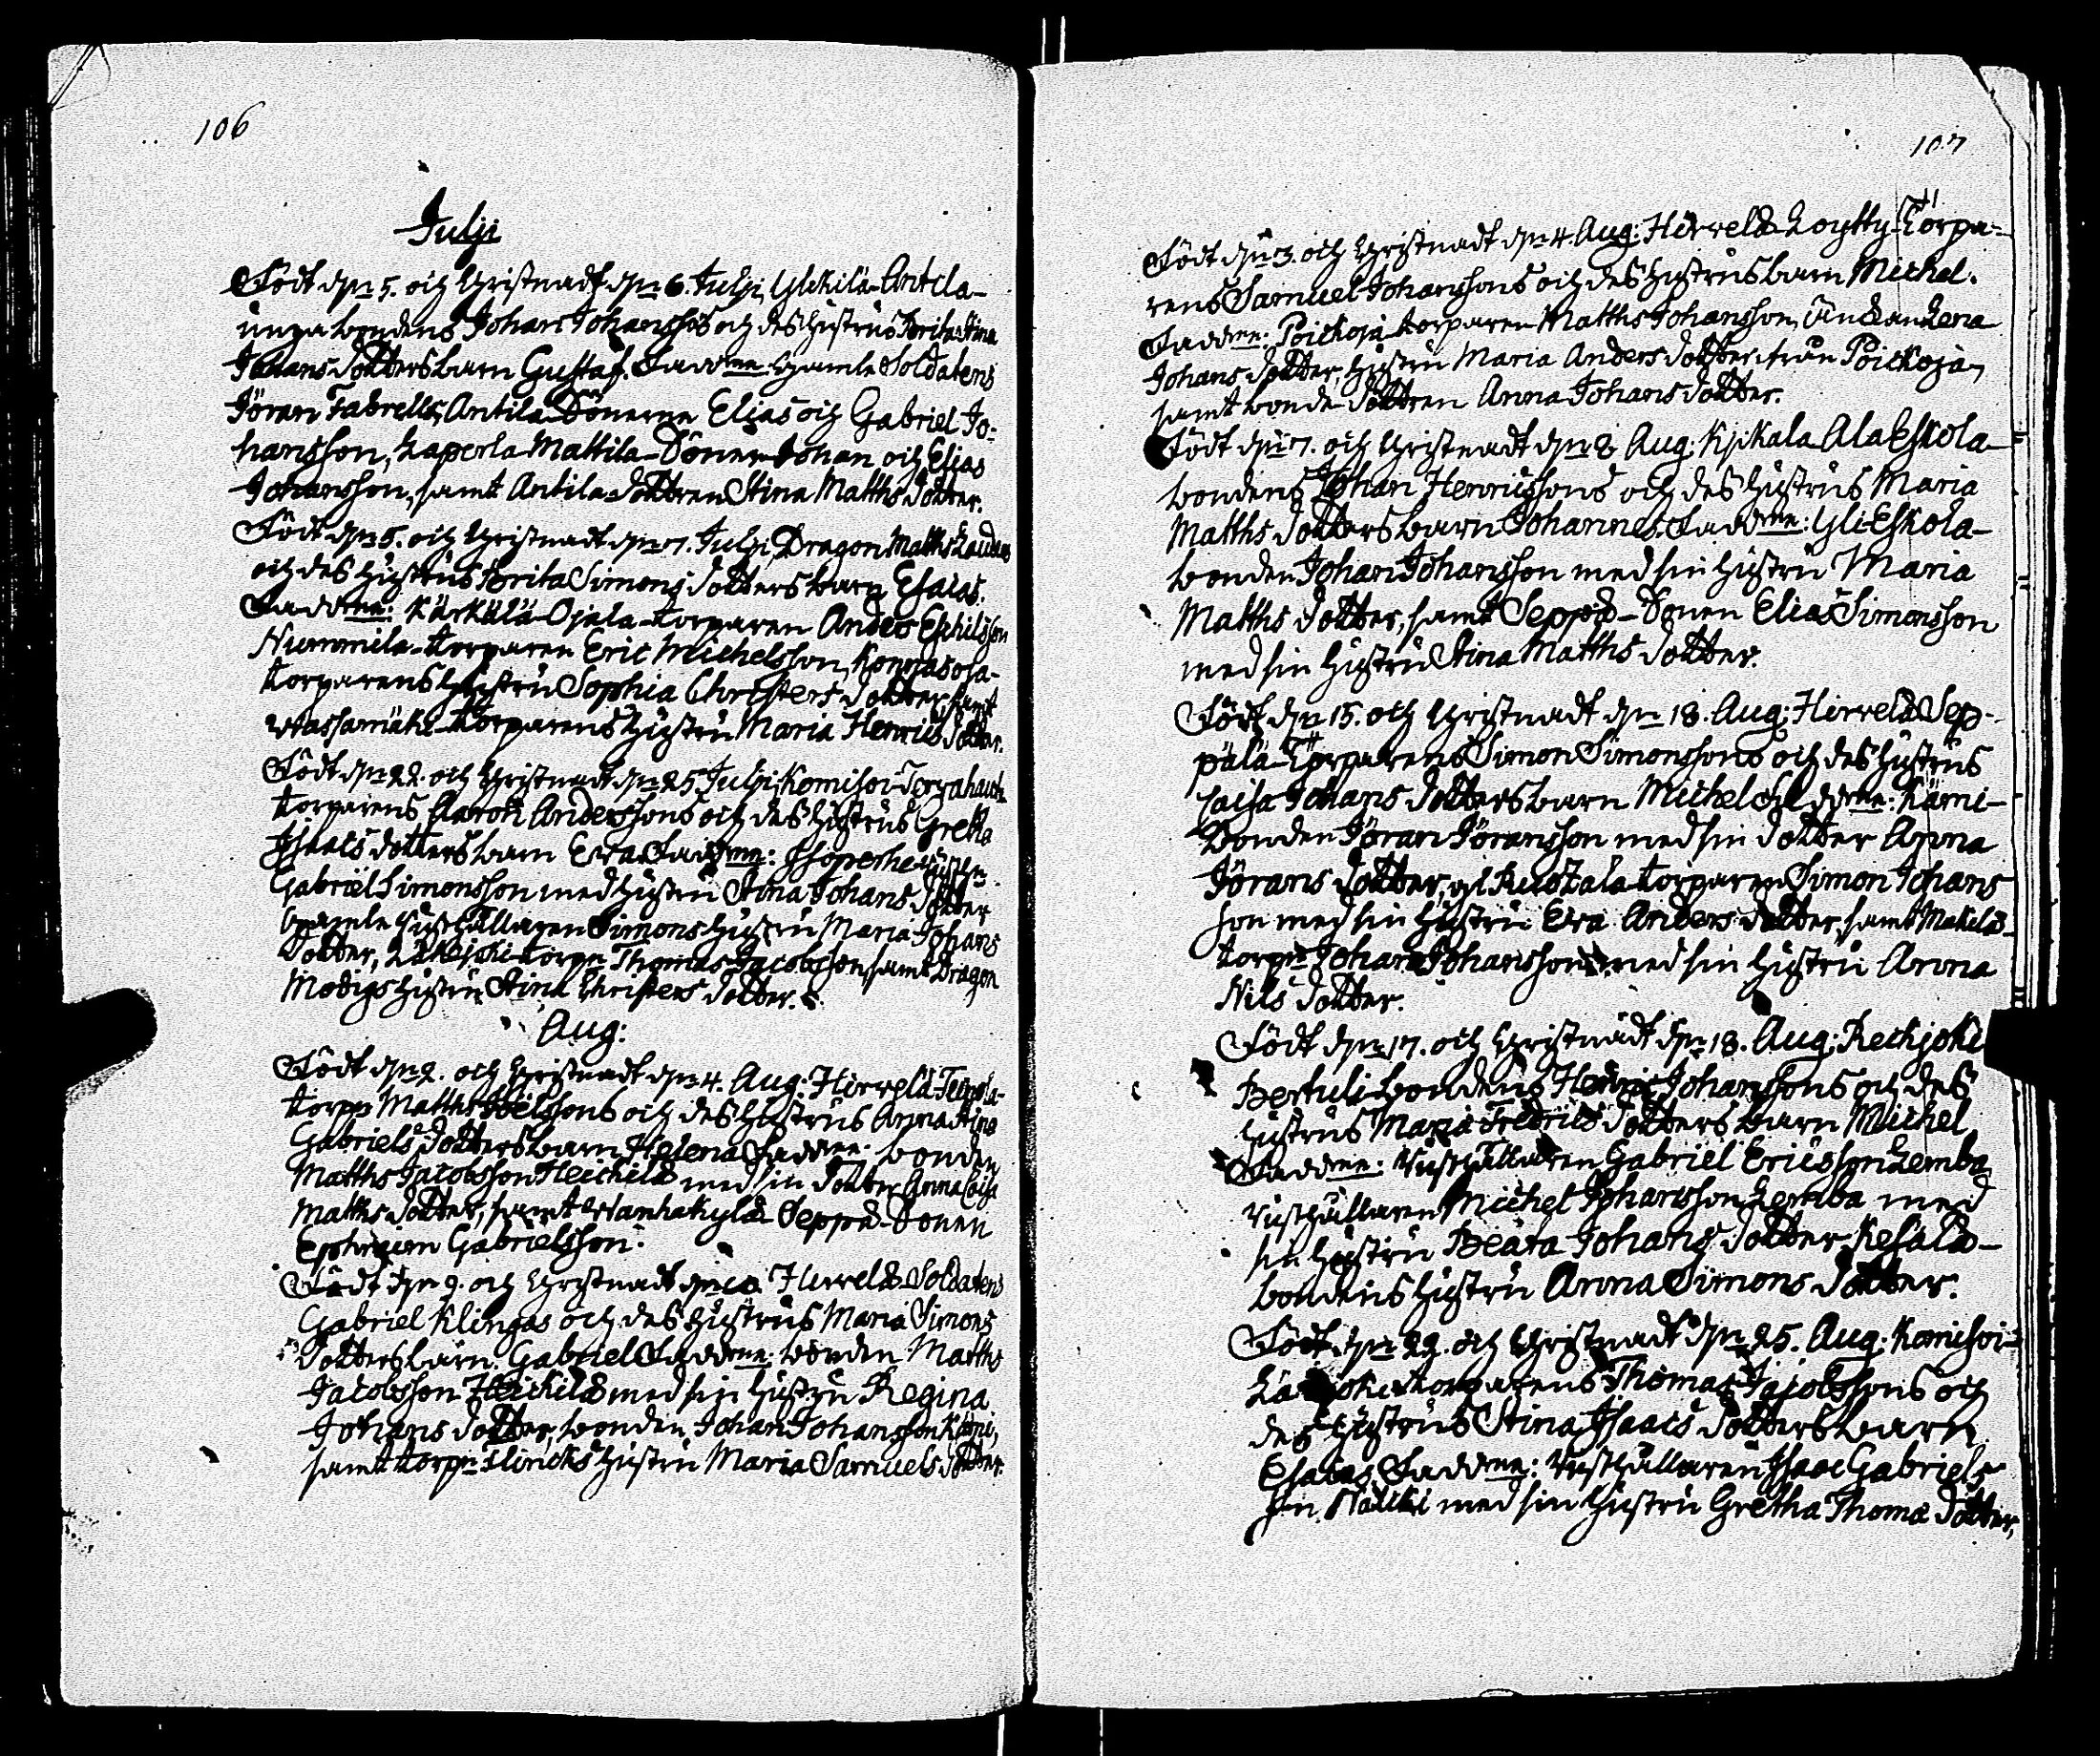 106
Julji
Född dn 5. och Christnadt dn 6. Julji, Ylikilä-Antila-
unga bondens Johan Johanssons och des hustrus Brita Stina
Johans Dotters barn Gustaf. Faddrne: Gamle Soldatens
Jöran Fabrells, Antila-Sönerne Elias och Gabriel Jo-
hansson, Kaperla-Mattila-Sönerne Johan och Elias
Johansson, samt Antila-Dottren Stina Matths Dotter.
Född dn 5. och Christnadt dn 7. Julji, Dragon Matths
och des hustrus Brita Simons Dotters barn Esaias.
Faddrne: Kärkälä-Ojala-torparen Anders Eskilsson
Nummila-torparen Eric Michelsson, Konnasoja-
torparens hustru Sophia Christers Dotter, samt
Wassamäki-torparens hustru Maria Henrics Dotter.
Född dn 22. och Christnadt dn 25 Julji, Komisoi-Tervahauta
torparens Aaron Anderssons och des hustrus Gretha
Isaacs dotters barn Eva. Faddrne:
Gabriel Simonsson med hustru Stina Johans Dotter
Gamle rusthållaren Simons hustru Maria Johans
Dotter, torpn Thomas Jacobsson, samt Dragon
Modigs hustru Stina Christers Dotter.
Aug:
Född dn 2. och Christnadt dn 4. Aug: Hirvelä-
torpn Matths och des hustrus Anna Stina
Gabriels Dotters barn Helena. Faddrne: bonden
Matths Jacobsson Heickilä med sin dotter Anna Caisa
Matths Dotter, samt Wanhakylä-Seppä-Sonen
Ephraim Gabrielsson.
Född dn 9. och Christnadt dn 10. Hirvelä-Soldatens
Gabriel Klingas och des hustrus Maria Simons
Dotters barn Gabriel. Faddrne: bonden Matths
Jacobsson Heickilä med sin hustru Regina
Johans Dotter, bonden Johan Johansson Kärni,
samt torpn Flincks hustru Maria Samuels Dotter.
107
Född dn 3. och Christnadt dn 4. Aug: Hirvelä-Löytty-Torpa-
rens Samuel Johanssons och des hustrus barn Michel.
Faddrne: Poickoja torparen Matths Johansson, Änckan Lena
Johans Dotter, hustru Maria Anders Dotter från Poickoja,
samt bonde-Dottren Anna Johans Dotter.
Född dn 7. och Christnadt dn 8 Aug: Kjikala Ala Eskola-
bondens Johan Henricssons och des hustrus Maria
Matths Dotters barn Johannes. Faddrne: Yli-Eskola-
bonden Johan Johansson med sin hustru Maria
Matths Dotter, samt Seppä-Sonen Elias Simonsson
med sin hustru Stina Matths Dotter.
Född dn 15. och Christnadt dn 18. Aug: Hirvelä Sep-
pälä-Torparens Simon Simonssons och des hustrus
Caisa Johans Dotters barn Michel. Faddrne: Kärni-
bonden Jöran Jöransson med sin dotter Anna
Jörans Dotter, torparen Simon Johans
son med sin hustru Eva Anders dotter, samt Mäkelä-
torpn Johan Johansson med sin hustru Anna
Nils Dotter.
Född dn 17. och Christnadt dn 18. Aug: Reckjoki
Bertuli-bondens Henric Johanssons och des
hustrus Maria Fredrics Dotters barn Michel
Faddrne: Rusthållaren Gabriel Ericsson Lemba
rusthållaren Michel Johansson Lemba med
sin hustru Beata Johans Dotter, Kesälä-
bondens hustru Anna Simons Dotter.
Född dn 22. och Christnadt dn 25. Aug: Komisoi-
torparens Thomas Jacobssons och
des hustrus Stina Isaacs dotters barn
Esaias. Faddrne: Rusthållaren Isaac Gabriels-
son med sin hustru Gretha Thomæ Dotter,